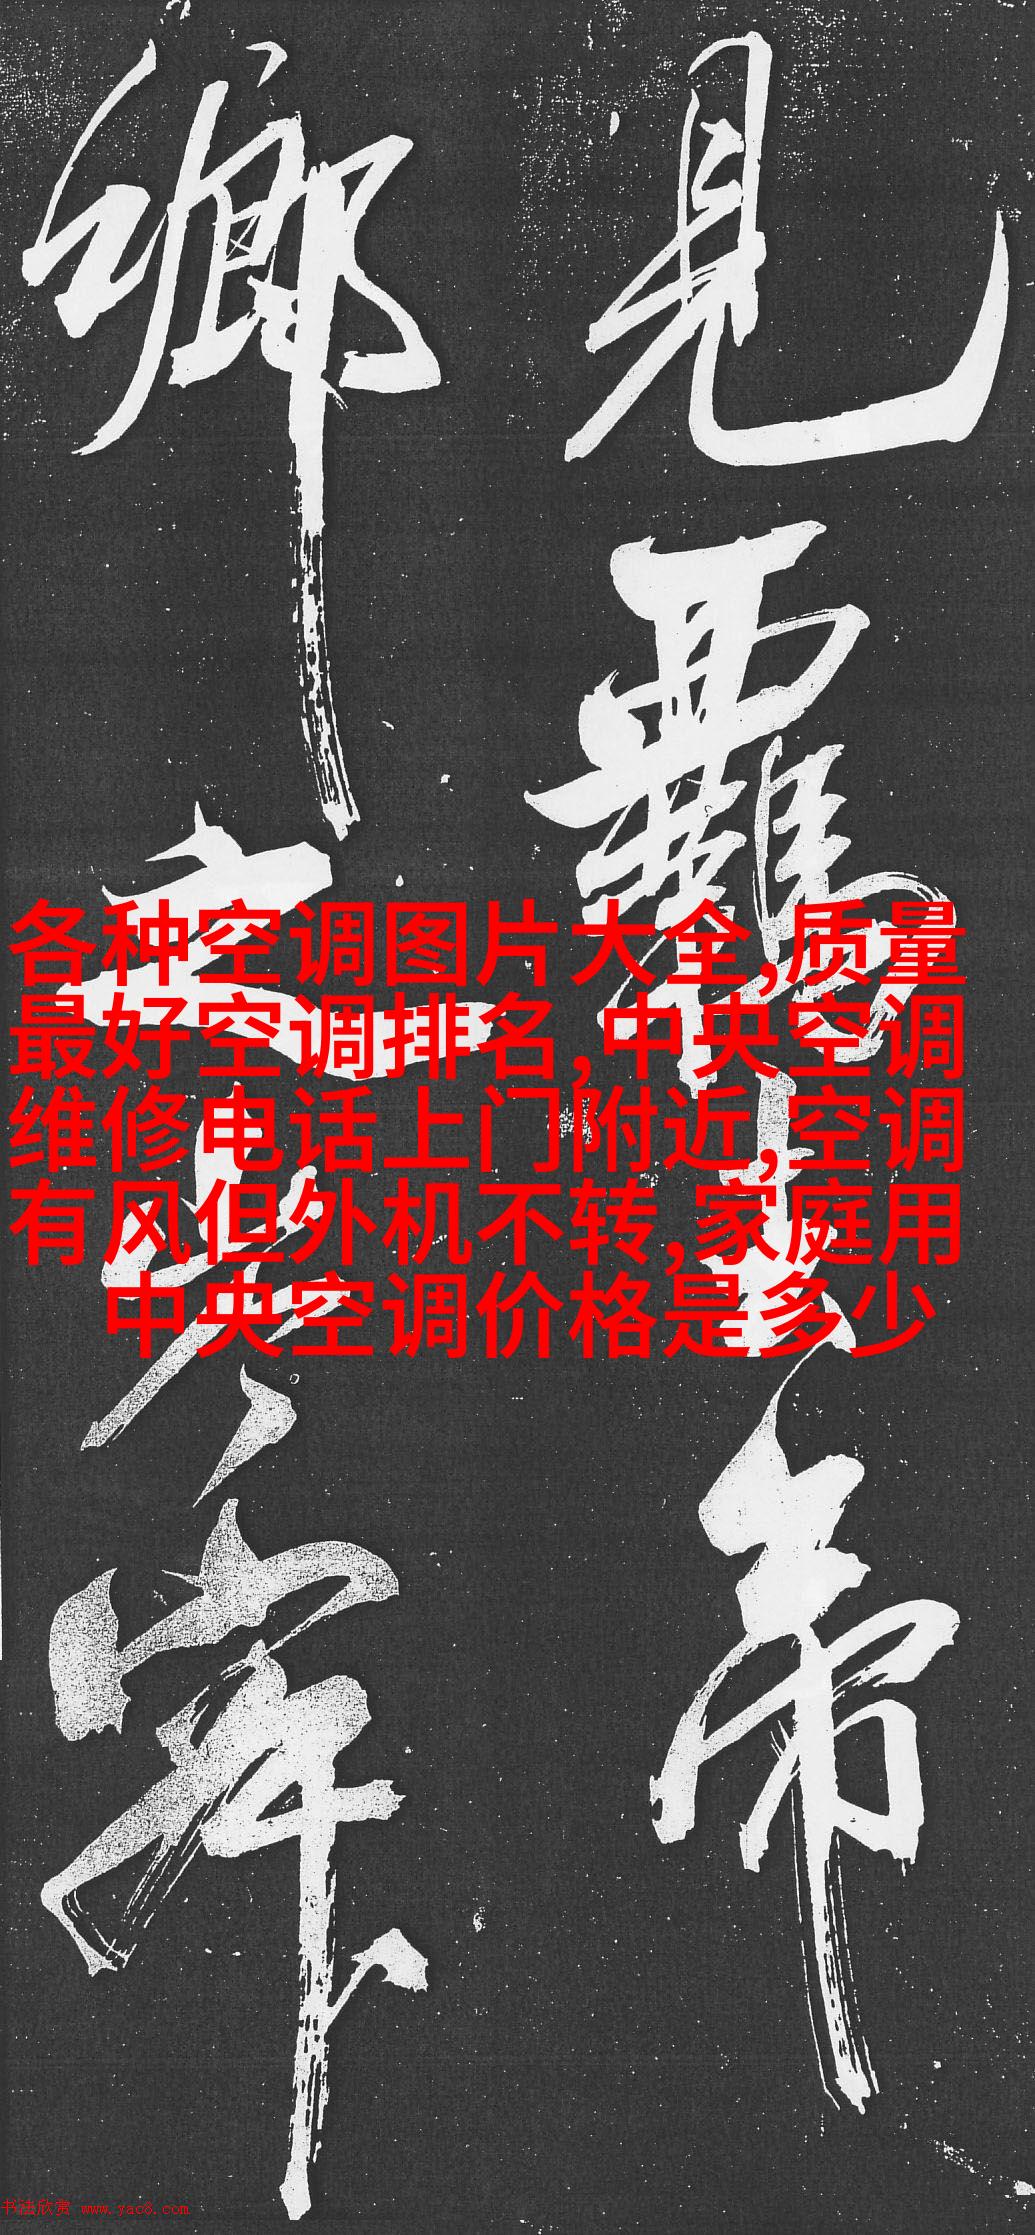 見
鄉之
各种空调图片大全,质量
最好空调排名,中央空调
维修电话上门附近,空调
有风但外机不转,家庭用
中央空调价格是多少
书法欣赏 www.yac8.com